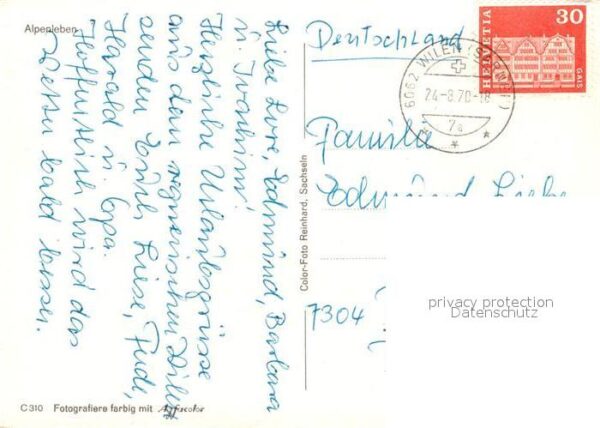 Alpenleben
Liebe Lore, Edmund, Barbara
u. Joachim!
Herzliche Urlaubsgrüsse
aus dem regnerischen Wilen
senden Euch Liese, Rudi,
Harald u. Opa.
Hoffentlich wird das
Wetter bald besser.
C 310 Fotografiere farbig mit Agfacolor
Color-Foto Reinhard, Sachseln
Deutschland
6062 WILEN (SARNEN)
24-8.70-18
7a
HELVETIA
30
GAIS
Familie
Edmund
7304
privacy protection
Datenschutz